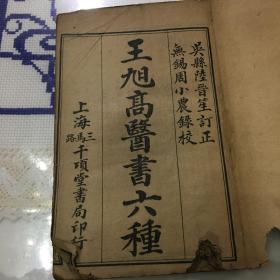 吳縣陸晉笙訂正
無錫周小農錄校
王旭高醫書六種
上海三馬路千頃堂書局印行